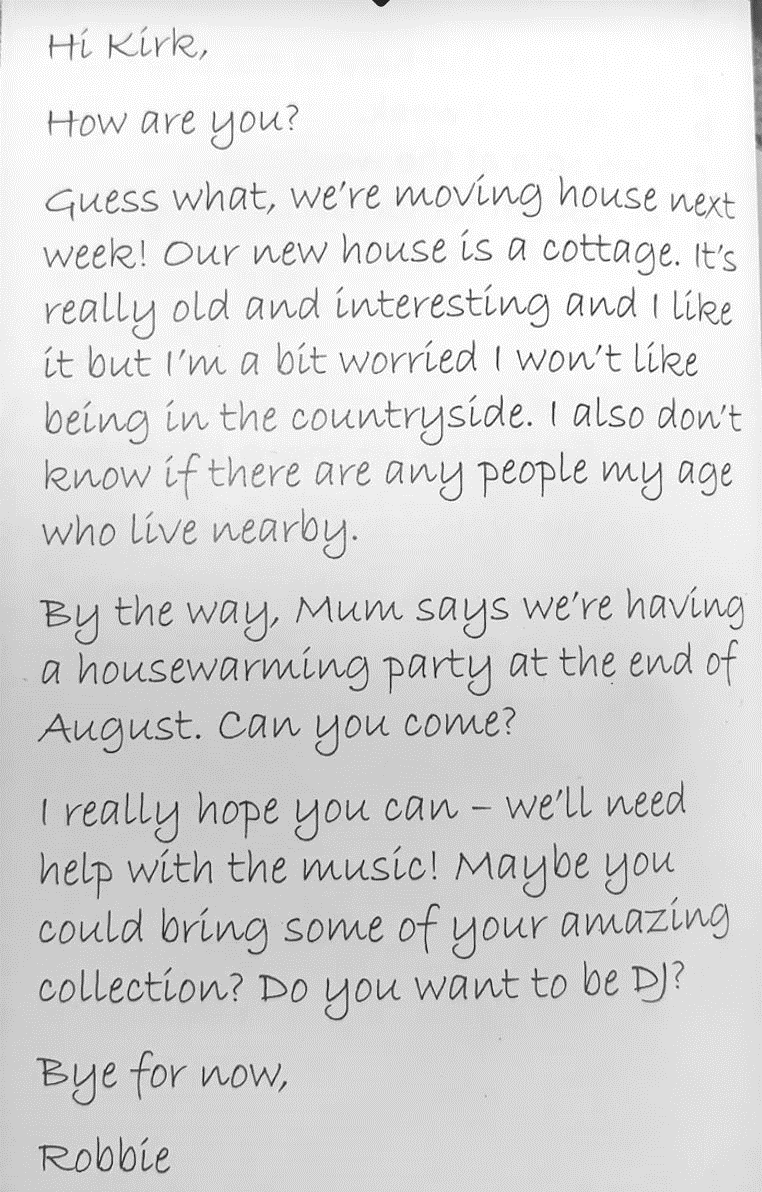 Hi Kirk,
How are you?
Guess what, we're moving house next
week! Our new house is a cottage. It's
really old and interesting and I like
it but I'm a bit worried I won't like
being in the countryside. I also don't
know if there are any people my age
who live nearby.
By the way, Mum says we're having
a housewarming party at the end of
August. Can you come?
I really hope you can – we'll need
help with the music! Maybe you
could bring some of your amazing
collection? Do you want to be DJ?
Bye for now,
Robbie